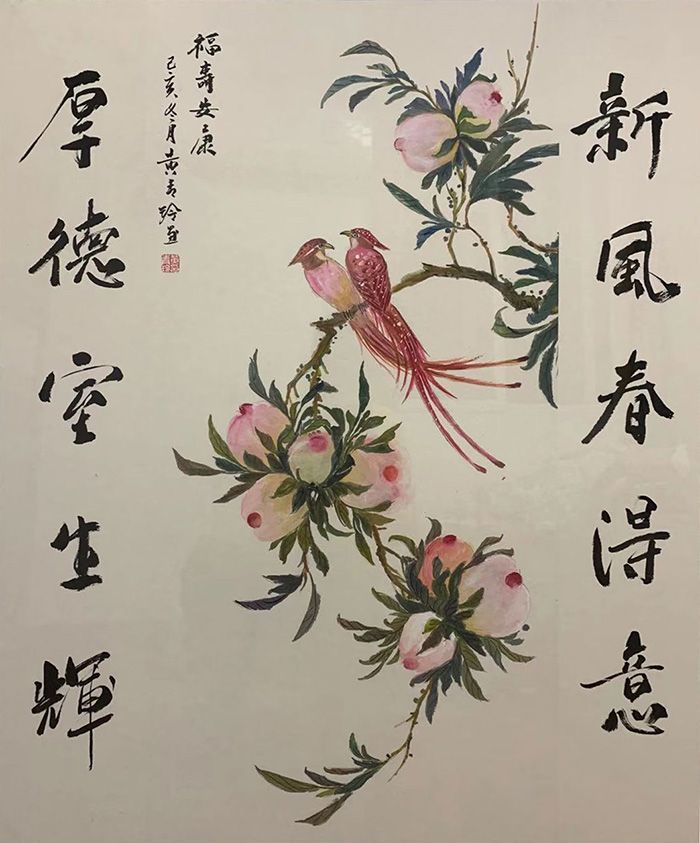 新風春得意
福壽安康
己亥冬月黄玲
厚德室生輝